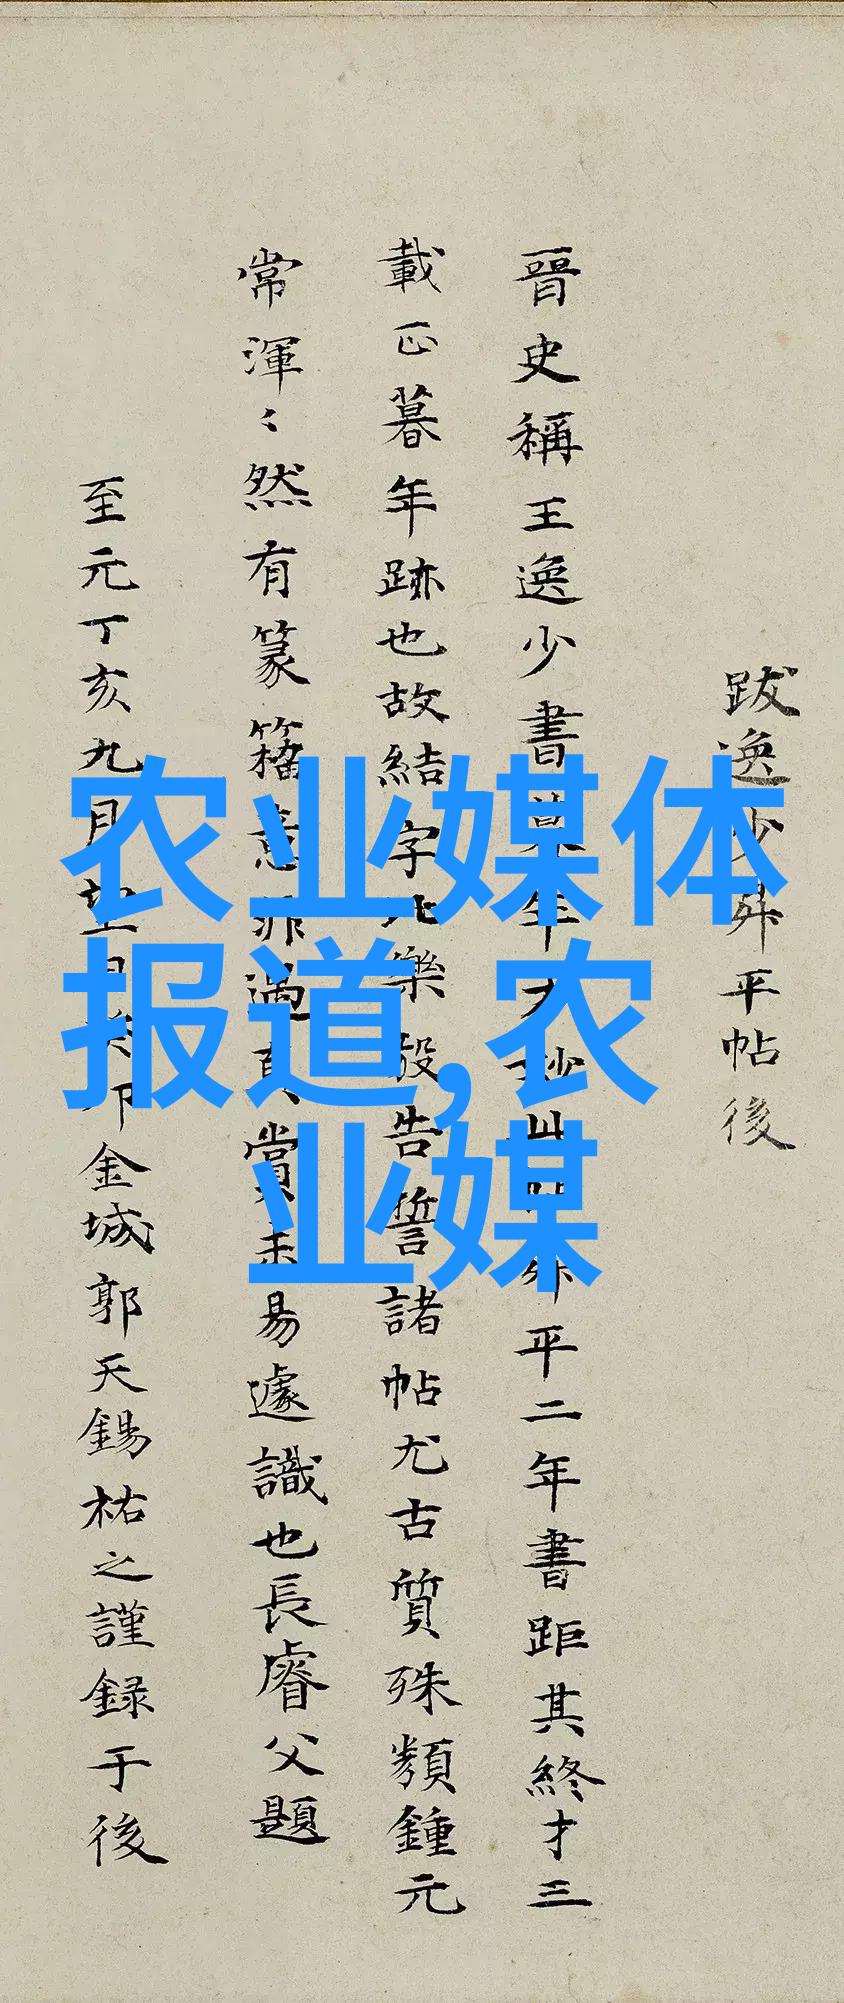 跋逸少升平帖後
晉史稱王逸少書年妙升平二年書距其終才三
載正暮年跡也故結字比樂毅告誓諸帖尤古質殊類鍾元
常渾〻然有篆籀意非遇真賞未易遽識也長睿父題
至元丁亥九月望日金城郭天錫祐之謹録于後
农业媒体
报道,农
业媒